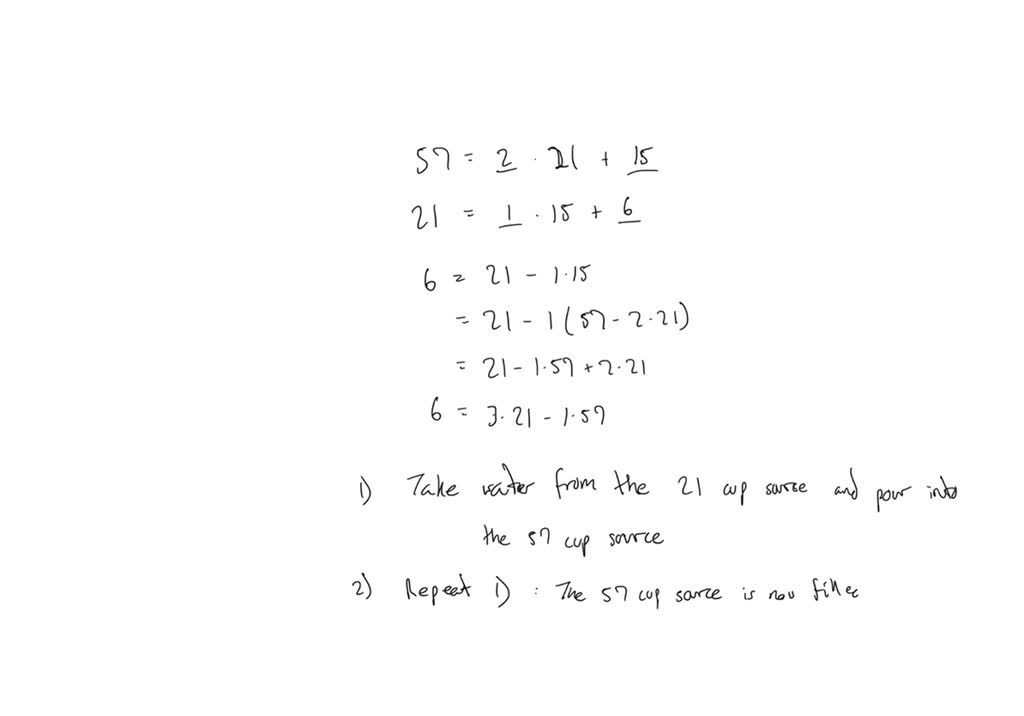 57 = 2 · 21 + 15
21 = 1 · 15 + 6
6 = 21 - 1·15
= 21 - 1(57 - 2·21)
= 21 - 1·57 + 2·21
6 = 3·21 - 1·57
1) Take water from the 21 cup source and pour into
the 57 cup source
2) Repeat 1) : The 57 cup source is now filled